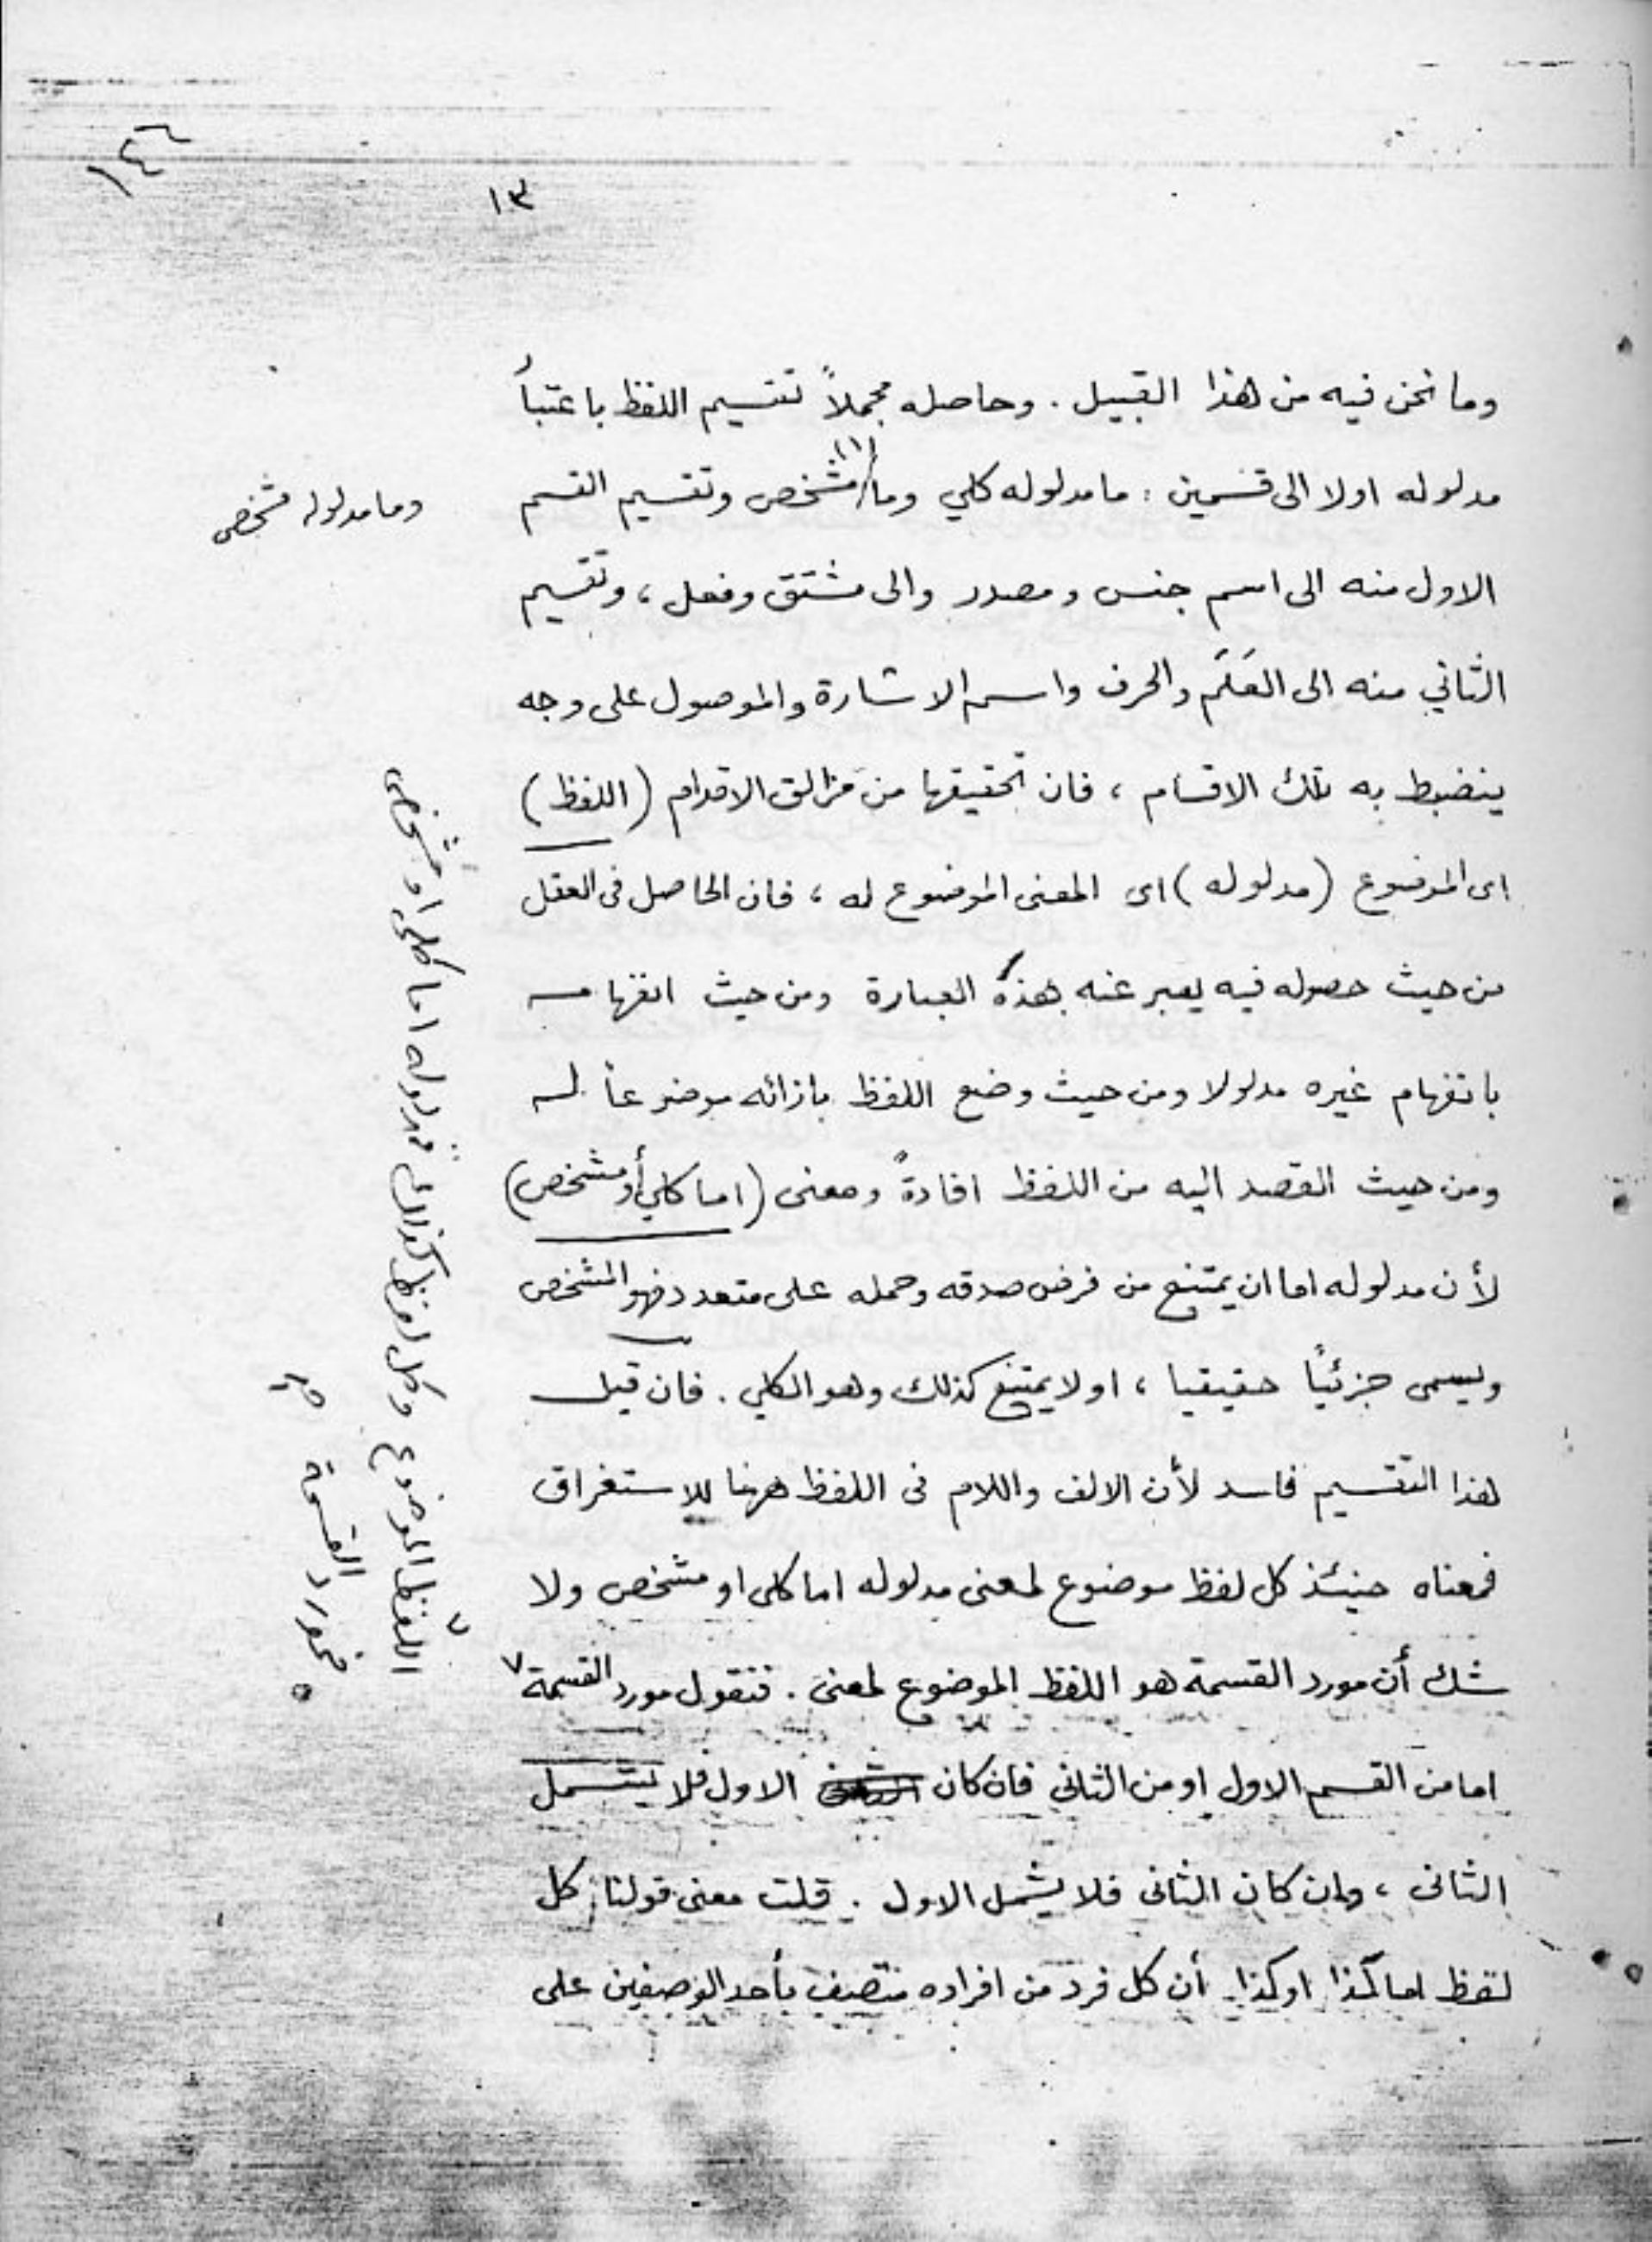 ١٤٦
١٣
وما نحن فيه من هذا القبيل . وحاصله مجملاً تقسيم اللفظ باعتبا
مدلوله اولا الى قسمين : ما مدلوله كلي وما (١) مشخص وتقسيم القسم
وما مدلوله مشخص
الاول منه الى اسم جنس ومصدر والى مشتق وفعل ، وتقسيم
الثاني منه الى العَلَم والحرف واسم الاشارة والموصول على وجه
ينضبط به تلك الاقسام ، فان تحقيقها من مزالق الاقدام (اللفظ)
اى الموضوع (مدلوله) اى المعنى الموضوع له ، فان الحاصل فى العقل
من حيث حصوله فيه يعبر عنه بهذه العبارة ومن حيث انفهامه
بانفهام غيره مدلولا ومن حيث وضع اللفظ بازائه موضوعاً له
ومن حيث القصد اليه من اللفظ افادةً ومعنى (اما كلي أو مشخص)
لأن مدلوله اما ان يمتنع من فرض صدقه وحمله على متعدد فهو المشخص
ويسمى جزئياً حقيقيا ، او لا يمتنع كذلك وهو الكلي . فان قيل
هذا التقسيم فاسد لأن الالف واللام فى اللفظ ههنا للاستغراق
فمعناه حينئذ كل لفظ موضوع لمعنى مدلوله اما كلى او مشخص ولا
شك أن مورد القسمة هو اللفظ الموضوع لمعنى . فنقول مورد القسمة ٧
اما من القسم الاول او من الثانى فان كان الاول فلا يشمل
الثانى ، وان كان الثانى فلا يشمل الاول . قلت معنى قولنا : كل
لفظ اما كذا او كذا . أن كل فرد من افراده متصف بأحد الوصفين على
٧ اللفظ الموضوع وكل لفظ كذلك فمدلوله اما كلي او مشخص
فمورد القسمة